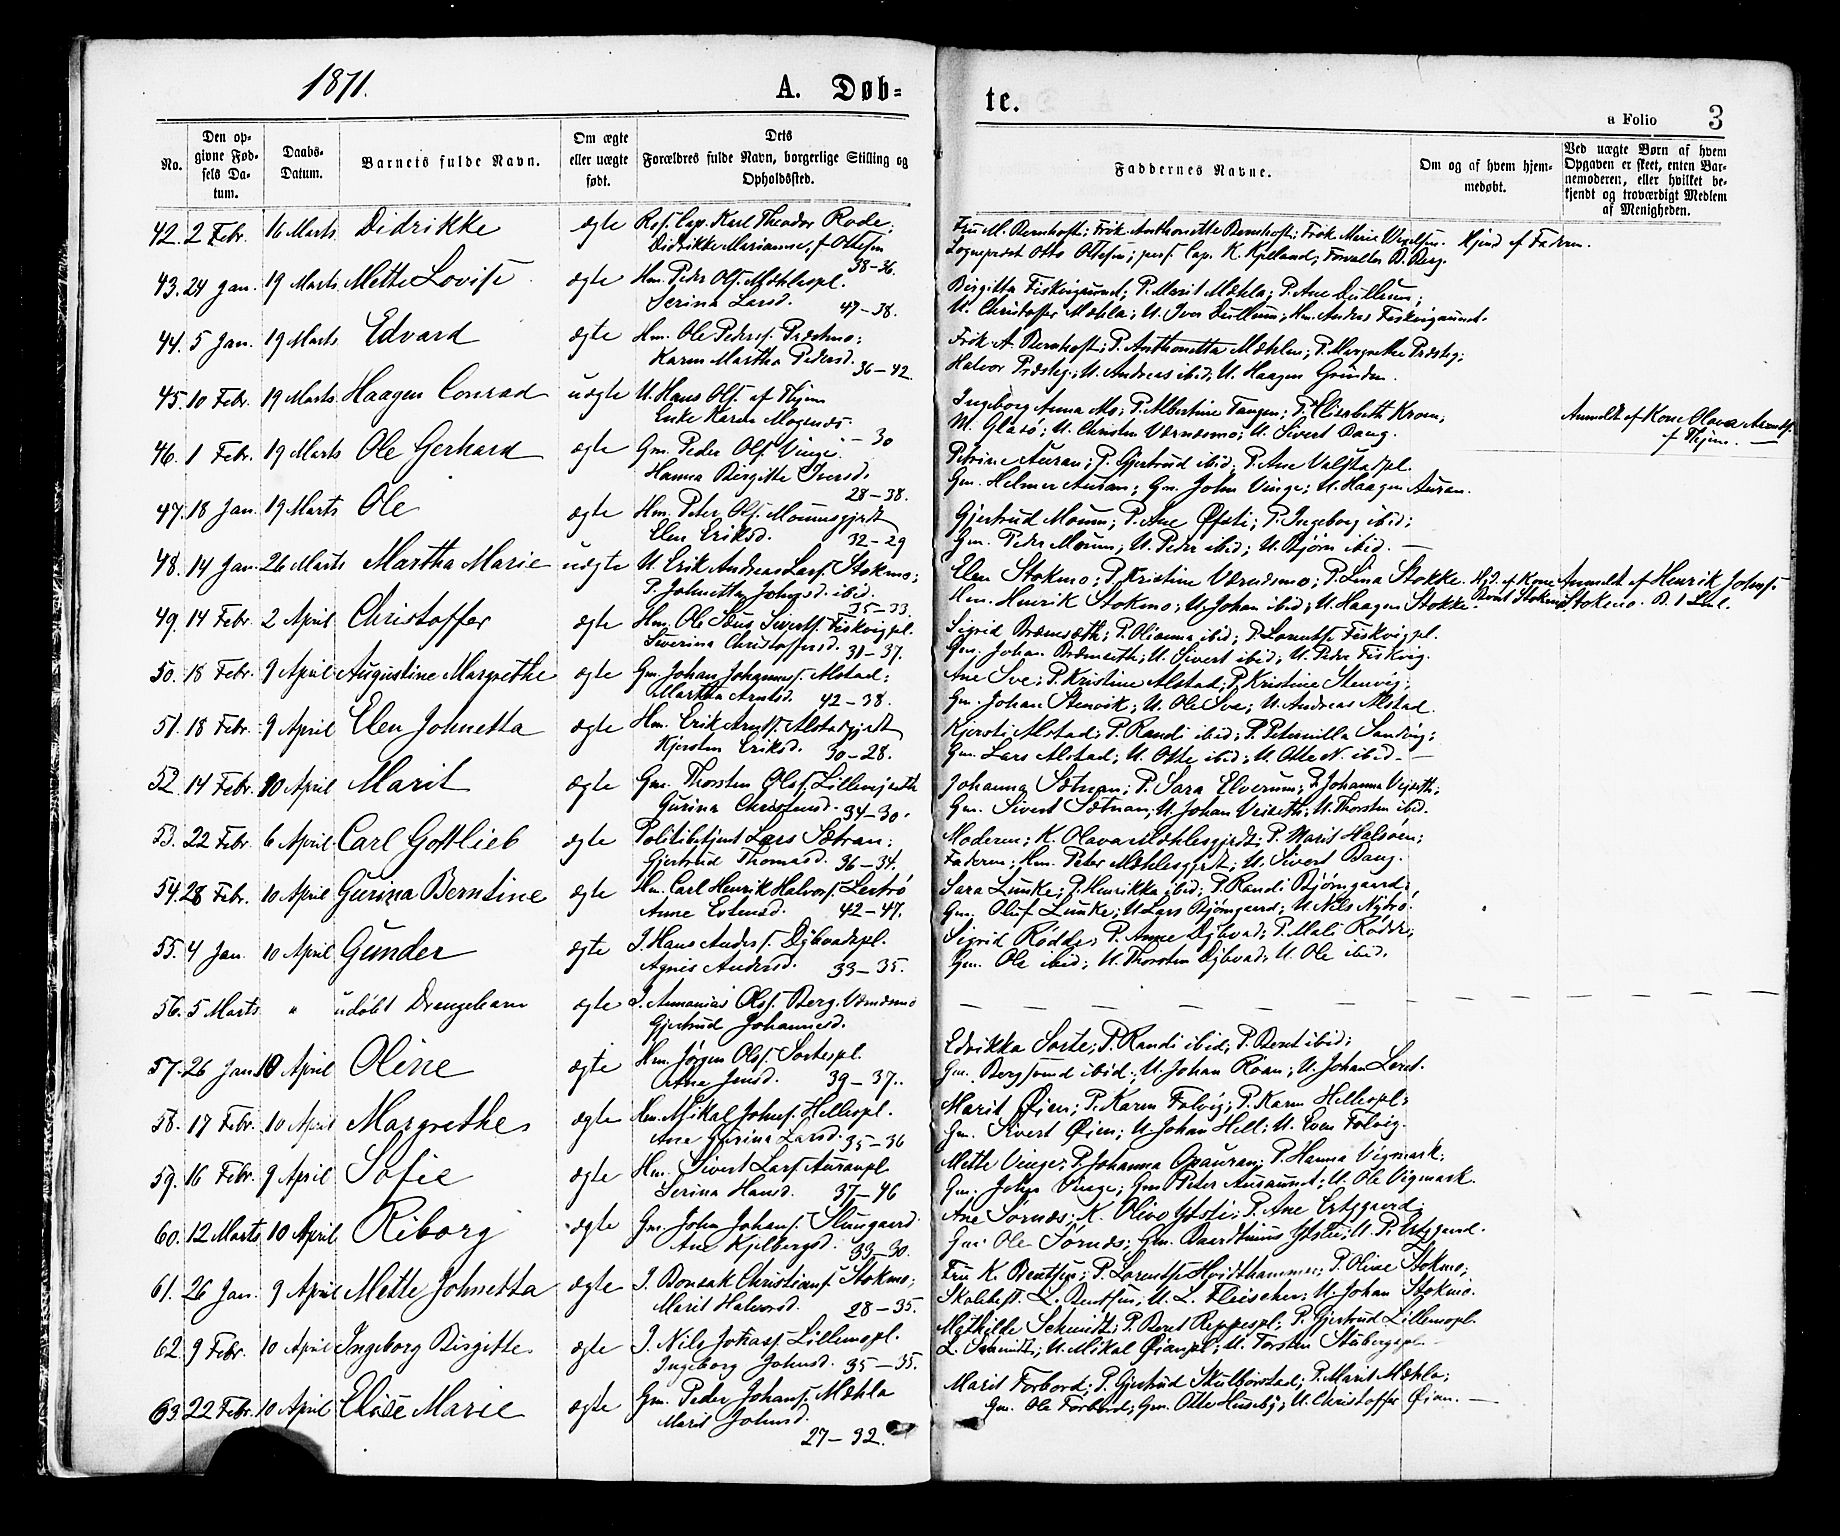 1871.
A. Døb=
te.
a Folio 3
No.
Den op-
givne Fød-
sels Da-
tum.
Daabs-
Datum.
Barnets fulde Navn.
Om ægte
eller uægte
født.
Dets
Forældres fulde Navn, borgerlige Stilling og
Opholdssted.
Faddernes Navne.
Om og af hvem hjem-
medøbt.
Ved uægte Børn af hvem
Opgaven er skeet, enten Bar-
nemoderen, eller hvilket be-
kjendt og troværdigt Medlem
af Menigheden.
42. 2 Febr. 16 Marts Didrikke ægte Cap. Karl Theodor Rode;
Didrikke Marianne, f Ottesen
38-36.
Fru M. Bernhoft; Frøk Anthonette Bernhoft; Frøk Marie
Sogneprest Otto Ottesen; pers. Cap. K. Kjelland; Forvalter B. Berg.
Hjmd af Faderen.
43. 24 Jan. 19 Marts Mette Lovise ægte Hm. Peder Ols. Mæhlespl.
Serina Larsd. 47-38.
Birgitta Fiskvigaund; P. Marit Mæhla; P. Ane Dullum;
U. Christoffer Mæhla; U. Iver Dullum; Hm. Anders Fiskvigaunet.
44. 5 Jan. 19 Marts Edvard ægte Hm. Ole Peders. Præstmo;
Karen Martha Pedersd. 36-42.
Frøk A Bernhoft; P. Anthonetta Mæhlen; P. Margrethe Præsteg;
Halvor Præsteg; U. Andreas ibid; U. Haagen
45. 10 Febr. 19 Marts Haagen Conrad uægte U. Hans Ols. af Thjem
Enke Karen Mogensd. -30
Ingeborg Anna Mo; P. Albertine Tangen; P. Elisabeth Kroen;
M. Glasø; U. Christen Værnæsmo; U. Sivert Dang.
Anmeldt af Kone Olava
f Thjem.
46. 1 Febr. 19 Marts Ole Gerhard ægte Gm. Peder Ols. Vinge.
Hanna Birgitte Iversd. 28-38.
Petrine Auran; P. Gjertrud ibid; P. Ane Valstadpl.
Gm. Helmer Auran; Gm. John Vinge; U. Haagen Auran.
47. 18 Jan. 19 Marts Ole ægte Hm. Peter Ols. Moumsgjerdt
Elen Eriksd. 32-29
Gjertrud Moum; P. Ane Øfsti; P. Ingeborg ibid;
Gm. Peder Moum; U. Peder ibid; U. Bjørn ibid.
48. 14 Jan. 26 Marts Martha Marie uægte U. Erik Andreas Lars. Stokmo;
P. Johnetta Johnsd. ibid. 35-33.
Elen Stokmo; P. Kristine Værnæsmo; P. Lina Stokke.
Hm. Henrik Stokmo; U. Johan ibid; U. Haagen Stokke.
Hjd. af Kone
Beret Stokmo
Anmeldt af Henrik Johns.
Stokmo.
49. 14 Febr. 2 April Christoffer ægte Hm. Ole Siverts. Fiskvigpl.
Severina Christoffersd. 31-37.
Sigrid Bremseth; P. Olianna ibid; P. Lorentse Fiskvigpl.
Gm. Johan Bremseth; U. Sivert ibid; U. Peder Fiskvig.
50. 18 Febr. 9 April Augustine Margrethe ægte Gm. Johan Johannes. Alstad;
Martha Arntsd. 42-38.
Ane Sve; P. Kristine Alstad; P. Kristine Stenvig;
Gm. Johan Stenvik; U. Ole Sve; U. Andreas Alstad.
51. 18 Febr. 9 April Elen Johnetta ægte Hm. Erik Arnts. Alstadgjerdt
Kjersten Eriksd. 30-28.
Kjersti Alstad; P. Randi ibid; P. Peternilla Sandvig;
Gm. Lars Alstad; U. Otte ibid; U. Otte N. ibid.
52. 14 Febr. 10 April Marit ægte Gm. Thorsten Ols. Lillemjseth
Gurina Christensd. 34-30.
Johanna Sætnan; P. Sara Elverum; P. Johanna Veiseth;
Gm. Sivert Sætnan; U. Johan Veiseth; U. Thorsten ibid.
53. 22 Febr. 6 April Carl Gottlieb ægte Politibetjent Lars Sætran;
Gjertrud Thomasd. 36-34.
Moderen; K. Olava Mæhlesgjerdt; P. Marit Halsøen;
Faderen; Hm. Peter Mæhlesgjerdt; U. Sivert Dang.
54. 28 Febr. 10 April Gurina Berntine ægte Hm. Carl Henrik Halvors. Lertrø
Anne Estensd. 42-47.
Sara Lunke; P. Henrikka ibid; P. Randi Bjørngaard;
Gm. Oluf Lunke; U. Lars Bjørngaard; U. Nils Nytrø.
55. 4 Jan. 10 April Gunder ægte I. Hans Anders. Dybvadspl.
Agnis Andersd. 33-35.
Sigrid Rødde; P. Anne Dybvad; P. Mali Rødde;
Gm. Ole ibid; U. Thorsten Dybvad; U. Ole ibid.
56. 5 Marts " udøbt Drengebarn ægte I. Annanias Ols. Berg. Værnæsmo
Gjertrud Johannesd.
57. 26 Jan. 10 April Oline ægte Hm. Jørgen Ols. Sortespl.
Ane Jensd. 39-37.
Edvikka Sorte; P. Randi ibid; P. Beret ibid;
Gm. Bergsvend ibid; U. Johan Roan; U. Johan Leret.
58. 17 Febr. 10 April Margrethe ægte Hm. Mikal Johns. Hellespl.
Ane Gurina Larsd. 35-36
Marit Øien; P. Karen Folvig; P. Karen Hellespl;
Gm. Sivert Øien; U. Johan Hell; U. Even Folvig.
59. 16 Febr. 9 April Sofie ægte Hm. Sivert Lars. Auranpl.
Serina Hansd. 37-46
Mette Vinge; P. Johanna Opauran; P. Hanna Vigmark;
Gm. John Vinge; Gm Peter Auraunet; U. Ole Vigmark.
60. 12 Marts 10 April Riborg ægte Gm. John Johans.
Ane Kjelbergsd. 33-30.
Ane Sørnæs; K. Olive Yststi; P. Ane Ertzgaard;
Gm Ole Sørnæs; Gm. U. P. Ertzgaard.
61. 26 Jan. 9 April Mette Johnetta ægte I. Bonsak Christians. Stokmo;
Marit Halvorsd. 28-35.
Fru K. Bentsen; P. Lorentse Hvidthammer; P. Oline Stokmo;
Skolebest. L. Bentsen; U. L. Fleischer; U. Johan Stokmo.
62. 9 Febr. 10 April Ingeborg Birgitte ægte I. Nils Johas. Lillemopl.
Ingeborg Johnsd. 35-35.
Mathilde Schmidt; P. Beret Reppespl; P. Gjertrud Lillemopl.
L. Schmidt; U. Mikal Øianpl; U. Torsten Stubergspl.
63. 22 Febr. 10 April Elise Marie ægte Gm. Peder Johans. Mæhla
Marit Johnsd.
27-32.
Marit Forbord; P. Gjertrud Skulbørstad; P. Marit Mæhla;
Gm. Ole Forbord; Gm. Otte Huseby; U. Christoffer Øian.